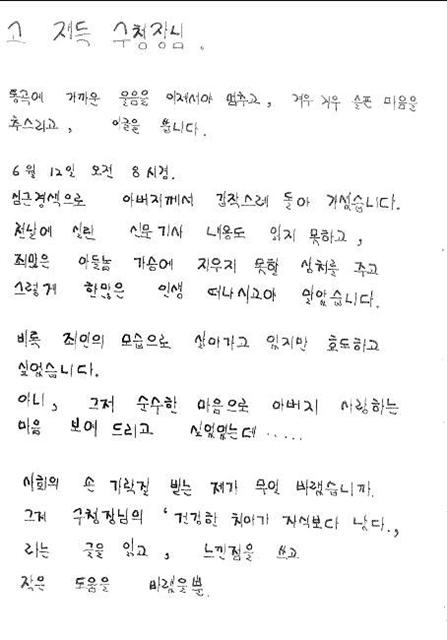 고 재득 구청장님.
통곡에 가까운 울음을 이제서야 멈추고, 겨우 겨우 슬픈 마음을
추스리고, 이글을 씁니다.
6월 12일 오전 8시경.
심근경색으로 아버지께서 갑작스레 돌아 가셨습니다.
전날에 실린 신문기사 내용도 읽지 못하고,
죄많은 아들놈 가슴에 지우지 못할 상처를 주고
그렇게 한많은 인생 떠나시고야 말았습니다.
비록 죄인의 모습으로 살아가고 있지만 효도하고
싶었습니다.
아니, 그저 순수한 마음으로 아버지 사랑하는
마음 보여 드리고 싶었었는데 .....
사회의 손가락질 받는 제가 무얼 바랬습니까.
그저 구청장님의 '건강한 치아가 자식보다 낫다.,
라는 글을 읽고, 느낀점을 쓰고
작은 도움을 바랬을뿐.